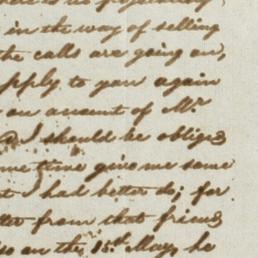 in the way of selling
the calls are going on,
apply to you again
on an amount of Mr.
I should be obliged
me time give me some
I had better do; for
from that friend
on the 15th May, he